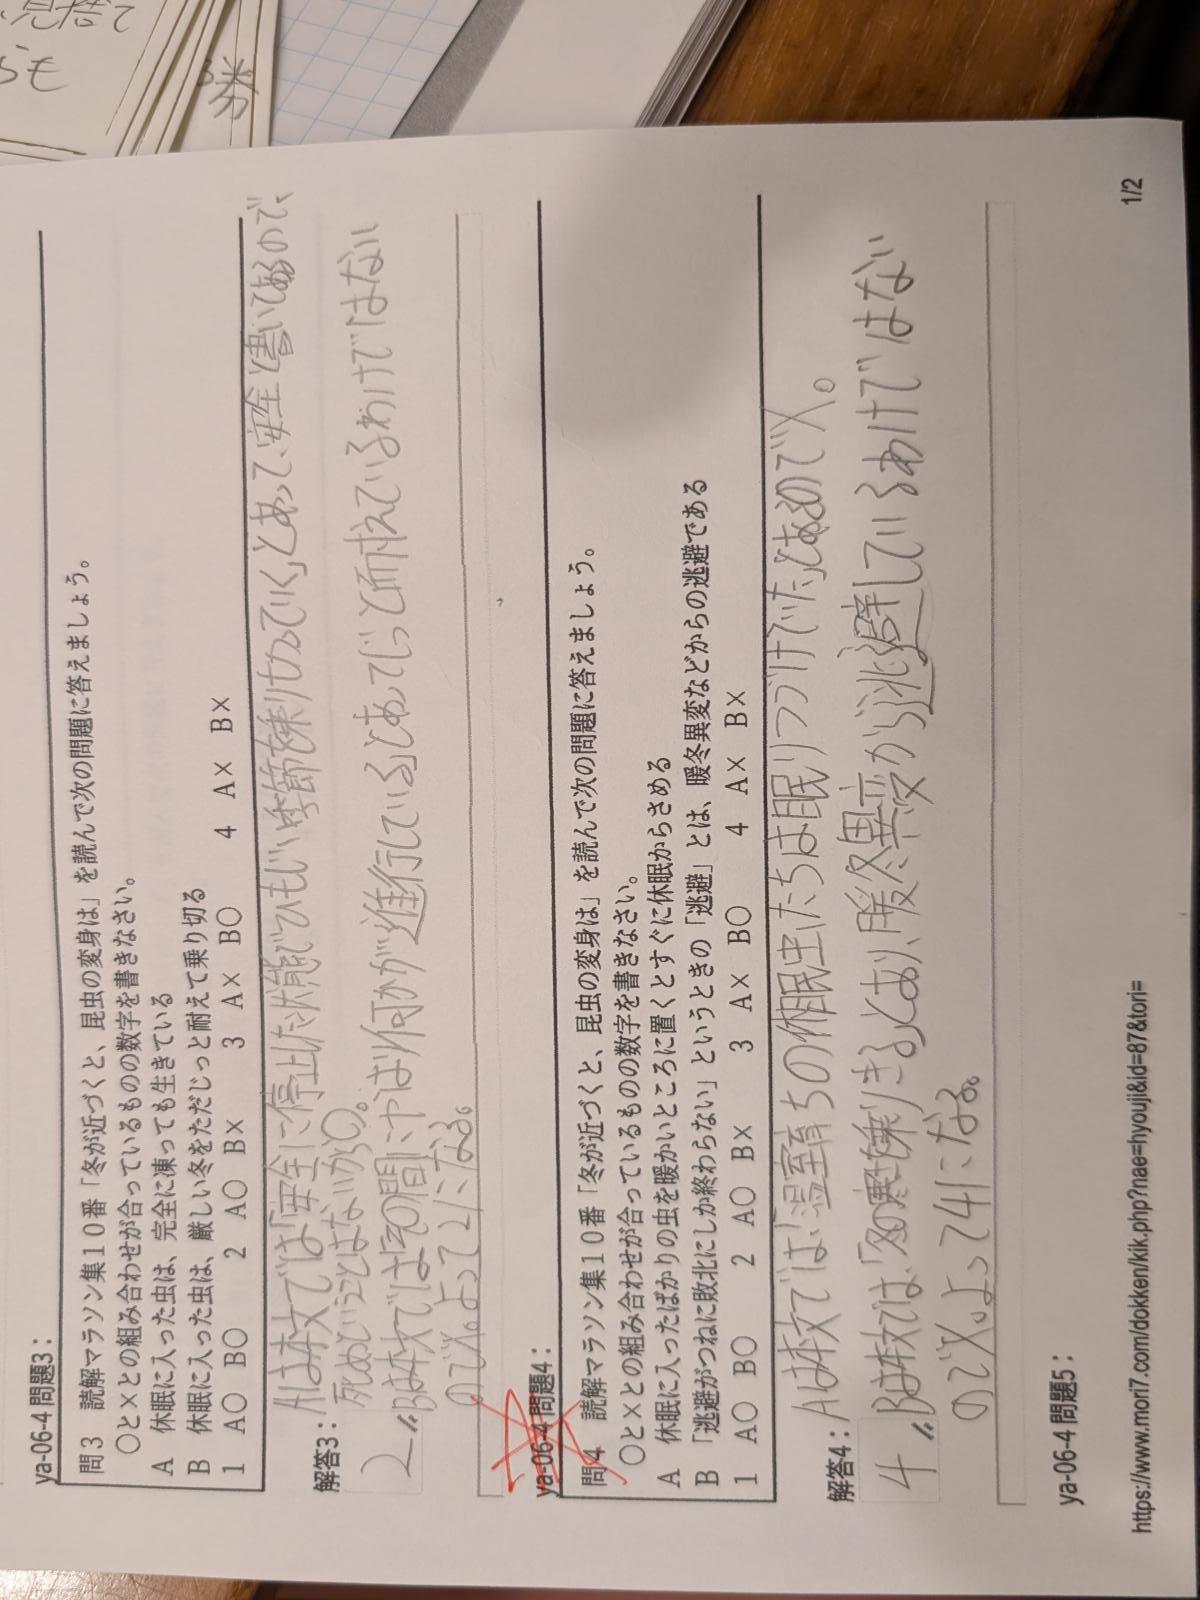 見捨て
らも
ya-06-4 問題3：
問3 読解マラソン集10番「冬が近づくと、昆虫の変身は」を読んで次の問題に答えましょう。
〇と×との組み合わせが合っているものの数字を書きなさい。
A 休眠に入った虫は、完全に凍っても生きている
B 休眠に入った虫は、厳しい冬をただじっと耐えて乗り切る
1 A〇 B〇 2 A〇 B× 3 A× B〇 4 A× B×
解答3：
2〃
Aは本文では「安全に停止した状態でひもじい季節を乗りきっていく」とあって、安全と書いてあるので、
死ぬということはないから〇。
Bは本文では「その間に中は何かが進行している」とあってじっと耐えているわけではない
ので×。よって2になる。
ya-06-4 問題4：
問4 読解マラソン集10番「冬が近づくと、昆虫の変身は」を読んで次の問題に答えましょう。
〇と×との組み合わせが合っているものの数字を書きなさい。
A 休眠に入ったばかりの虫を暖かいところに置くとすぐに休眠からさめる
B 「逃避がつねに敗北にしか終わらない」というときの「逃避」とは、暖冬異変などからの逃避である
1 A〇 B〇 2 A〇 B× 3 A× B〇 4 A× B×
解答4：
4〃
Aは本文では「温室育ちの休眠虫たちは眠りつづけていた」とあるので×。
Bは本文では、「寒を乗りきる」とあり、暖冬異変から逃避しているわけではない
ので×。よって4になる。
ya-06-4 問題5：
https://www.mori7.com/dokken/kik.php?nae=hyouji&id=87&tori=
1/2